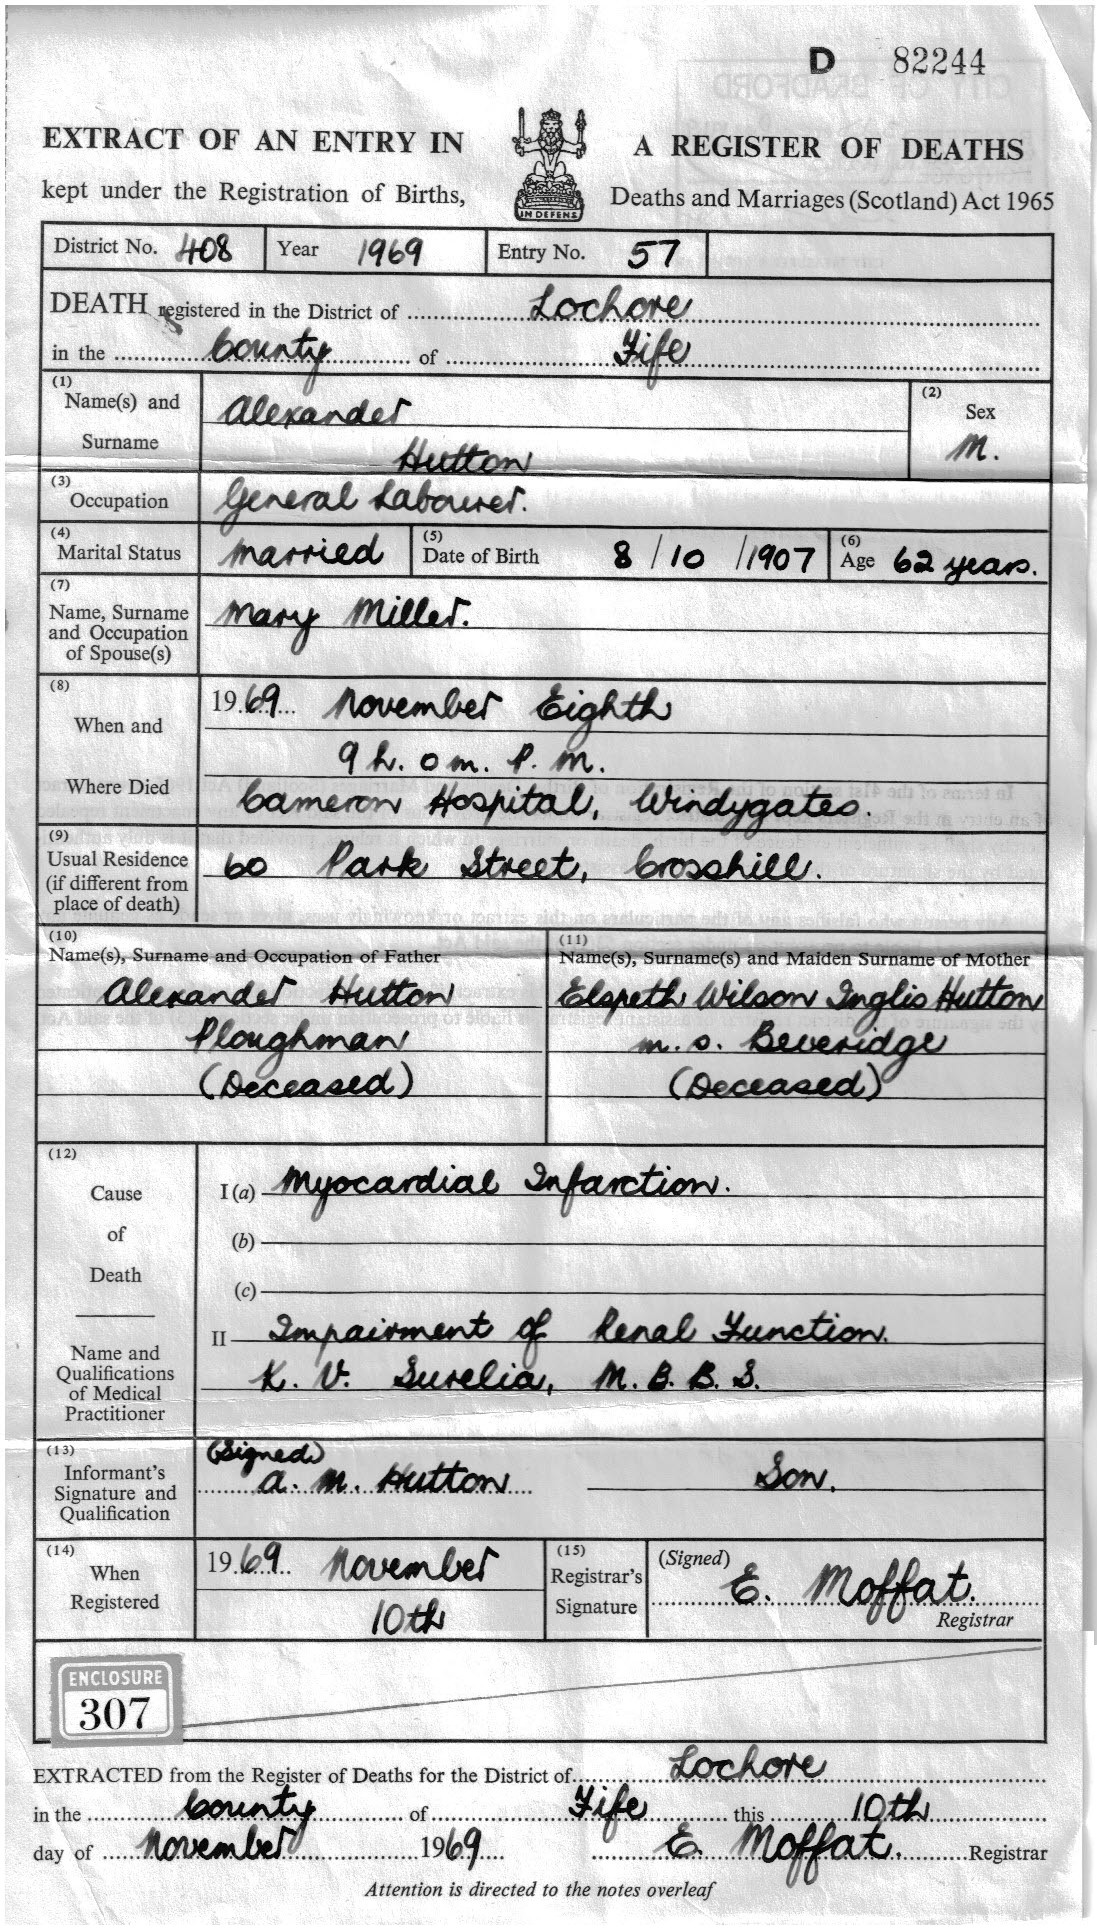 D 82244
EXTRACT OF AN ENTRY IN A REGISTER OF DEATHS
IN DEFENS
kept under the Registration of Births, Deaths and Marriages (Scotland) Act 1965
District No. 408 Year 1969 Entry No. 57
DEATH registered in the District of Lochore
in the County of Fife
(1) Name(s) and Surname
Alexander
Hutton
(2) Sex
M.
(3) Occupation
General Labourer.
(4) Marital Status
Married
(5) Date of Birth 8/10/1907
(6) Age 62 years.
(7)
Name, Surname
and Occupation
of Spouse(s)
Mary Miller.
(8)
When and
Where Died
1969 November Eighth
9 h. 0 m. P. M.
Cameron Hospital, Windygates
(9)
Usual Residence
(if different from
place of death)
60 Park Street, Crosshill.
(10)
Name(s), Surname and Occupation of Father
Alexander Hutton
Ploughman
(Deceased)
(11)
Name(s), Surname(s) and Maiden Surname of Mother
Elspeth Wilson Inglis Hutton
m.s. Beveridge
(Deceased)
(12)
Cause
of
Death
I (a) Myocardial Infarction.
(b)
(c)
II Impairment of Renal Function.
Name and
Qualifications
of Medical
Practitioner
K. V. Surelia, M.B.B.S.
(13)
Informant's
Signature and
Qualification
(Signed)
A. M. Hutton Son.
(14)
When
Registered
1969 November
10th
(15)
Registrar's
Signature
(Signed)
E. Moffat.
Registrar
ENCLOSURE
307
EXTRACTED from the Register of Deaths for the District of Lochore
in the County of Fife this 10th
day of November 1969 E. Moffat. Registrar
Attention is directed to the notes overleaf